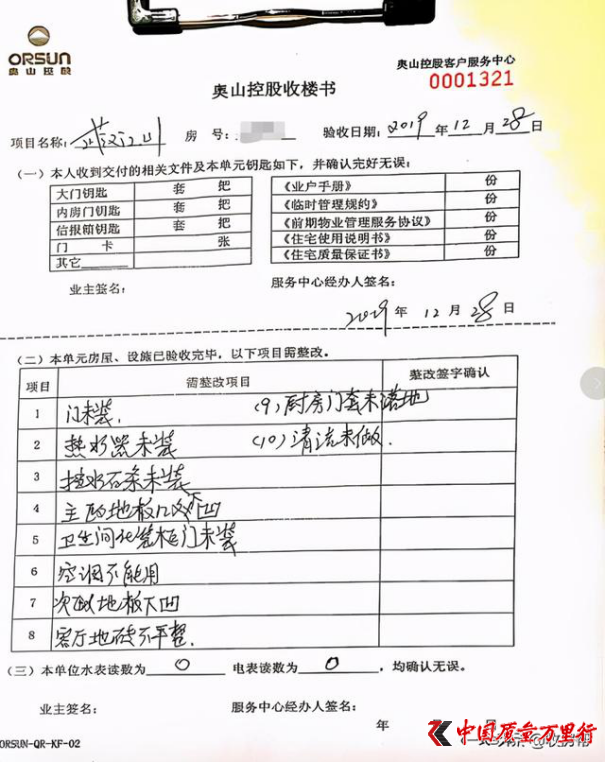 ORSUN
奥山控股
奥山控股客户服务中心
0001321
奥山控股收楼书
项目名称: 房 号: 验收日期: 2019 年 12 月 28 日
(一) 本人收到交付的相关文件及本单元钥匙如下, 并确认完好无误:
大门钥匙 套 把 《业户手册》 份
内房门钥匙 套 把 《临时管理规约》 份
信报箱钥匙 套 把 《前期物业管理服务协议》 份
门 卡 张 《住宅使用说明书》 份
其它 《住宅质量保证书》 份
业主签名: 服务中心经办人签名:
2019 年 12 月 28 日
(二) 本单元房屋、设施已验收完毕, 以下项目需整改。
项目 需整改项目 整改签字确认
1 门未装. (9) 厨房门套未落地
2 热水器未装 (10) 清洁未做.
3 挡水石条未装
4 主卧地板 下凹
5 卫生间 柜门未装
6 空调不能用
7 次卧地板下凹
8 客厅地砖不平整.
(三) 本单位水表读数为 0 电表读数为 0 , 均确认无误。
业主签名: 服务中心经办人签名:
年
ORSUN-QR-KF-02
中国质量万里行